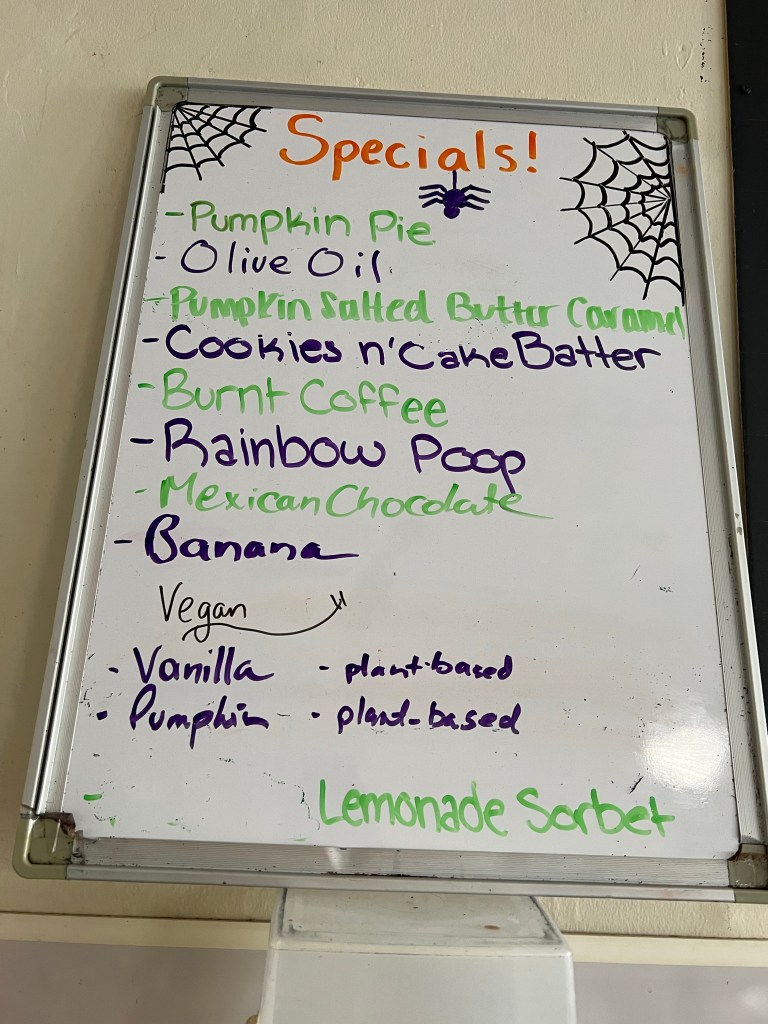 Specials!
- Pumpkin Pie
- Olive Oil
- Pumpkin Salted Butter Caramel
- Cookies n' Cake Batter
- Burnt Coffee
- Rainbow Poop
- Mexican Chocolate
- Banana
Vegan
· Vanilla · plant-based
· Pumpkin · plant-based
- Lemonade Sorbet